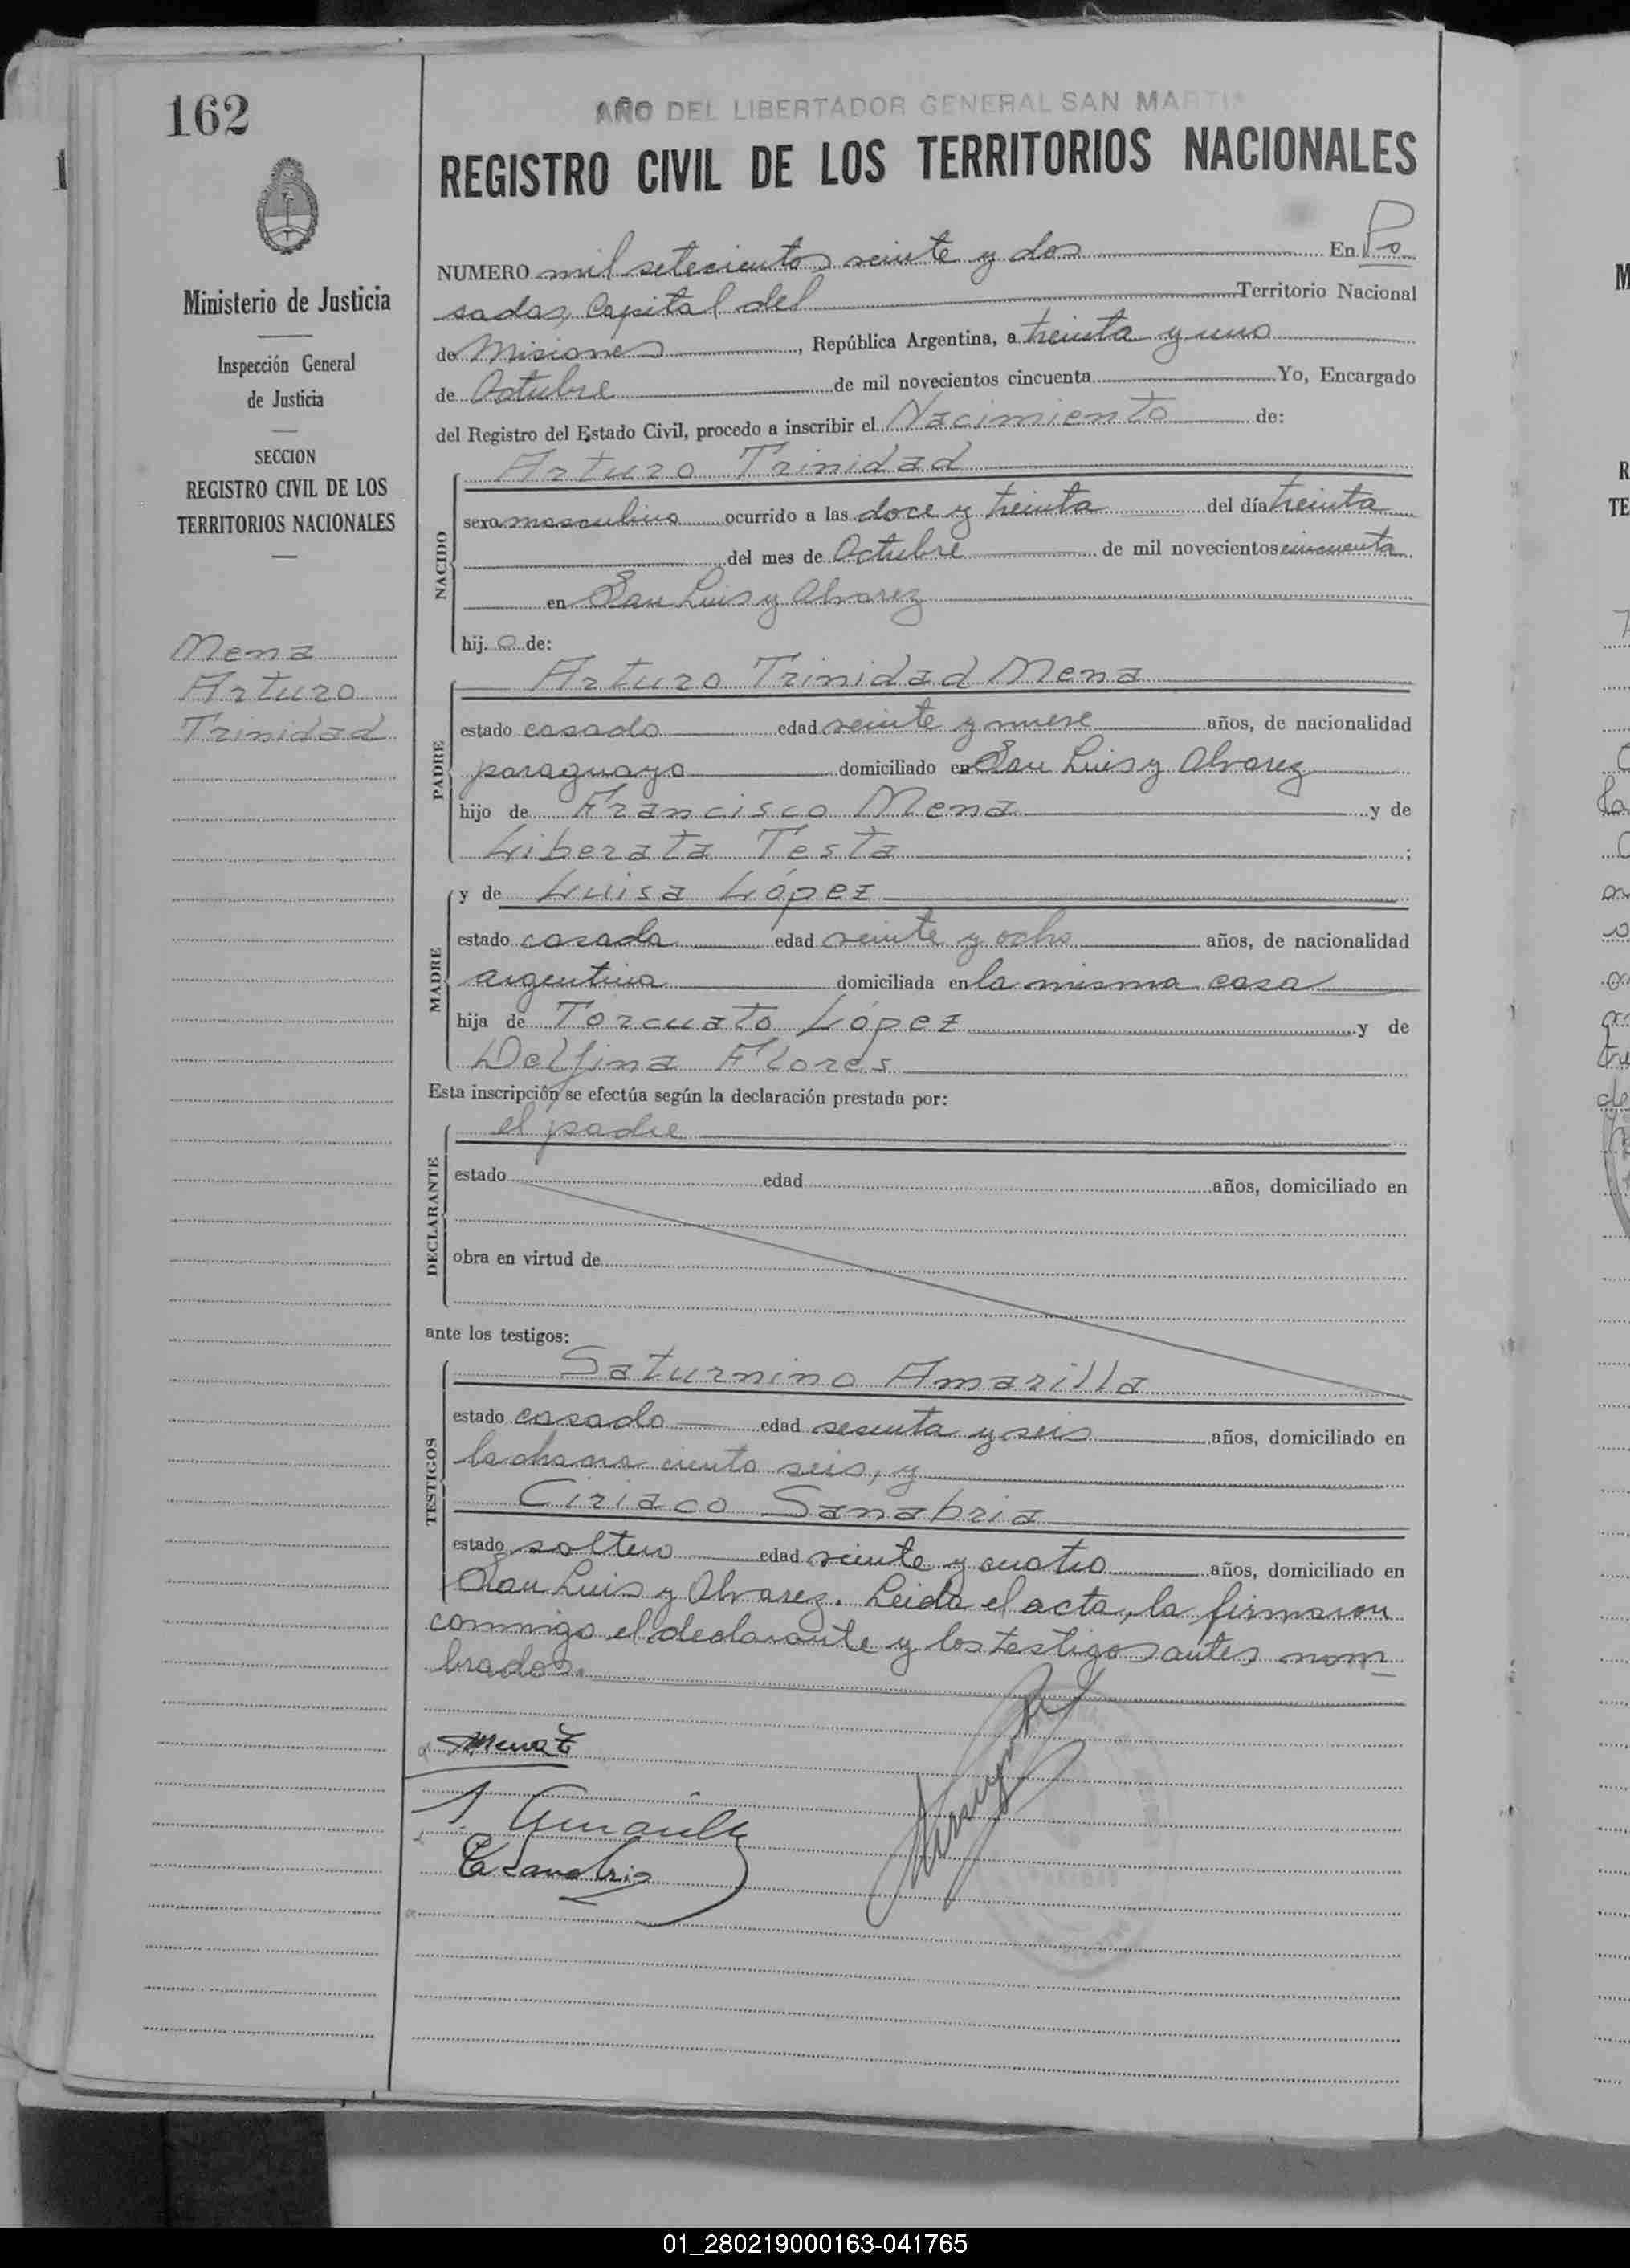 162
AÑO DEL LIBERTADOR GENERAL SAN MARTIN
REGISTRO CIVIL DE LOS TERRITORIOS NACIONALES
Ministerio de Justicia
Inspección General
de Justicia
SECCION
REGISTRO CIVIL DE LOS
TERRITORIOS NACIONALES
Mena
Arturo
Trinidad
NUMERO mil setecientos veinte y dos En Po
sadas, Capital del Territorio Nacional
de Misiones, República Argentina, a treinta y uno
de Octubre de mil novecientos cincuenta Yo, Encargado
del Registro del Estado Civil, procedo a inscribir el Nacimiento de:
NACIDO
Arturo Trinidad
sexo masculino ocurrido a las doce y treinta del día treinta
del mes de Octubre de mil novecientos cincuenta
en San Luis y Alvarez
hij o de:
PADRE
Arturo Trinidad Mena
estado casado edad veinte y nueve años, de nacionalidad
paraguaya domiciliado en San Luis y Alvarez
hijo de Francisco Mena y de
Liberata Testa ;
MADRE
y de Luisa López
estado casada edad veinte y ocho años, de nacionalidad
argentina domiciliada en la misma casa
hija de Torcuato López y de
Delfina Flores
Esta inscripción se efectúa según la declaración prestada por:
DECLARANTE
el padre
estado edad años, domiciliado en
obra en virtud de
ante los testigos:
TESTIGOS
Saturnino Amarilla
estado casado edad sesenta y seis años, domiciliado en
la chacra ciento seis, y
Ciriaco Sanabria
estado soltero edad veinte y cuatro años, domiciliado en
San Luis y Alvarez. Leida el acta, la firmaron
conmigo el declarante y los testigos antes nom
brados.
Mena T
S. Amarilla
C Sanabria
01_280219000163-041765